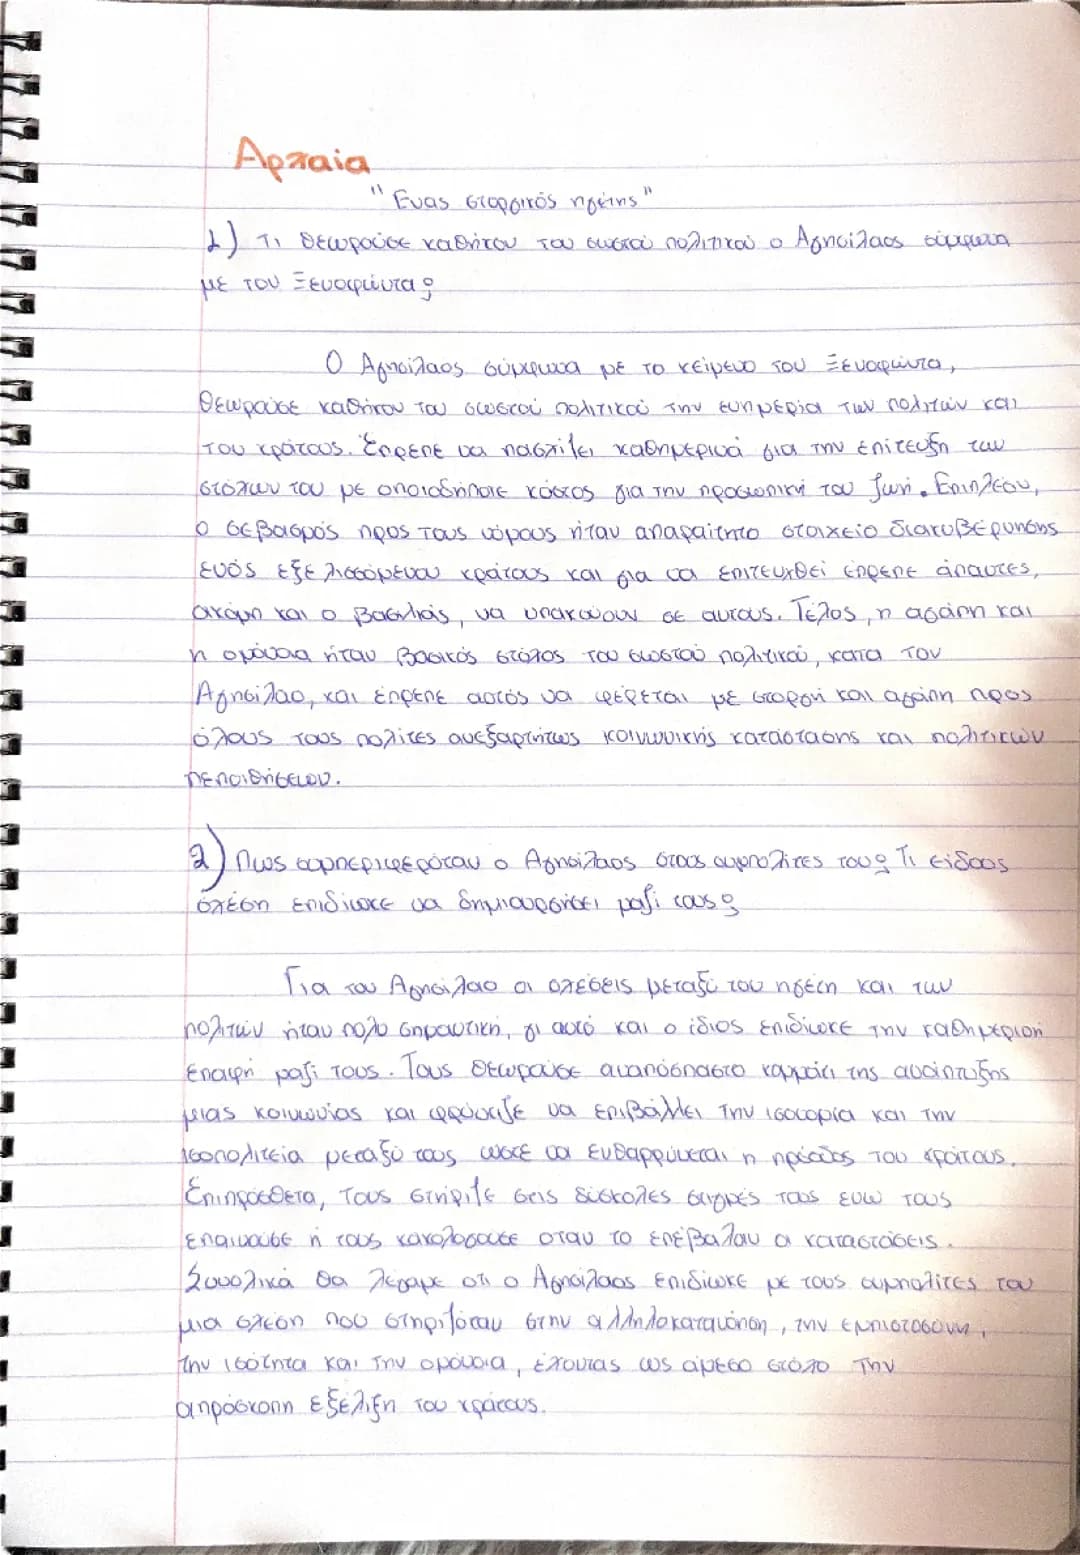 Αρχαία
"Ένας στοργικός ηγέτης"
1) Τι θεωρούσε καθήκον του σωστού πολιτικού ο Αγησίλαος σύμφωνα
με τον Ξενοφώντα;
Ο Αγησίλαος σύμφωνα με το κείμενο του Ξενοφώντα,
θεωρούσε καθήκον του σωστού πολιτικού την ευημερία των πολιτών και
του κράτους. Έπρεπε να πασχίζει καθημερινά για την επίτευξη των
στόχων του με οποιοδήποτε κόστος για την προσωπική του ζωή. Επιπλέον,
ο σεβασμός προς τους νόμους ήταν απαραίτητο στοιχείο διακυβέρνησης
ενός εξελισσόμενου κράτους και για να επιτευχθεί έπρεπε άπαντες,
ακόμη και ο βασιλιάς, να υπακούουν σε αυτούς. Τέλος, η αγάπη και
η ομόνοια ήταν βασικός στόχος του σωστού πολιτικού, κατά τον
Αγησίλαο, και έπρεπε αυτός να φέρεται με στοργή και αγάπη προς
όλους τους πολίτες ανεξαρτήτως κοινωνικής κατάστασης και πολιτικών
πεποιθήσεων.
2) Πως συμπεριφερόταν ο Αγησίλαος στους συμπολίτες του; Τι είδους
σχέση επιδίωκε να δημιουργήσει μαζί τους;
Για τον Αγησίλαο οι σχέσεις μεταξύ του ηγέτη και των
πολιτών ήταν πολύ σημαντική, γι αυτό και ο ίδιος επιδίωκε την καθημερινή
επαφή μαζί τους. Τους θεωρούσε αναπόσπαστο κομμάτι της ανάπτυξης
μιας κοινωνίας και φρόντιζε να επιβάλλει την ισονομία και την
ισοπολιτεία μεταξύ τους ώστε να ευθαρρύνεται η πρόοδος του κράτους.
Επιπρόσθετα, τους στήριζε στις δύσκολες στιγμές τους ενώ τους
επαινούσε ή τους κακολογούσε όταν το επέβαλαν οι καταστάσεις.
Συνολικά θα λέγαμε ότι ο Αγησίλαος επιδίωκε με τους συμπολίτες του
μια σχέση που στηριζόταν στην αλληλοκατανόηση, την εμπιστοσύνη,
την ισότητα και την ομόνοια, έχοντας ως άμεσο στόχο την
απρόσκοπη εξέλιξη του κράτους.